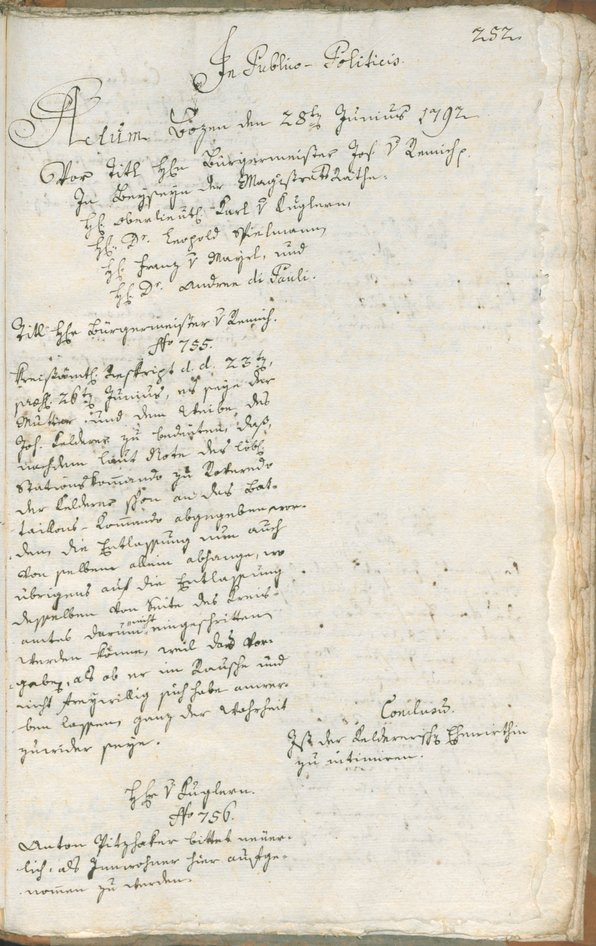 252
In Publico-Politicis.
Actum Bozen den 28ten Junius 1792
Vor Titl H. H. Bürgermeister Jos. v Remich,
In Beyseyn der Magistratsräthe.
H. Oberlieut. Karl v Kuglern,
H. Dr. Leopold Spielmann,
H. Franz v Mayrl, und
H. Dr. Andree di Pauli.
Titl H. Bürgermeister v Remich.
No 755.
Kreisämtl. Reskript d. d. 23ten,
præs. 26ten Junius, es seye der
Mutter und dem Weibe des
Jos. Kelderer zu bedeuten, daß,
nachdem laut Note des löbl.
Stationskomando zu Roveredo
der Kelderer schon an das Bat-
taillons-Komando abgegeben wor-
den, die Entlassung nun auch
von selbem allein abhange, wo
übrigens auf die Entlassung
desselben von Seite des Kreis-
amtes darum nicht eingeschritten
werden könne, weil das Vor-
geben, als ob er im Rausche und
nicht freywillig sich habe anwer-
ben lassen, ganz der Wahrheit
zuwider seye.
Conclusum.
Ist der Keldererschen Ehewirthin
zu intimiren.
H. H. v Kuglern.
No 756.
Anton Pitzhaker bittet neuer-
lich, als Innwohner hier aufge-
nommen zu werden.